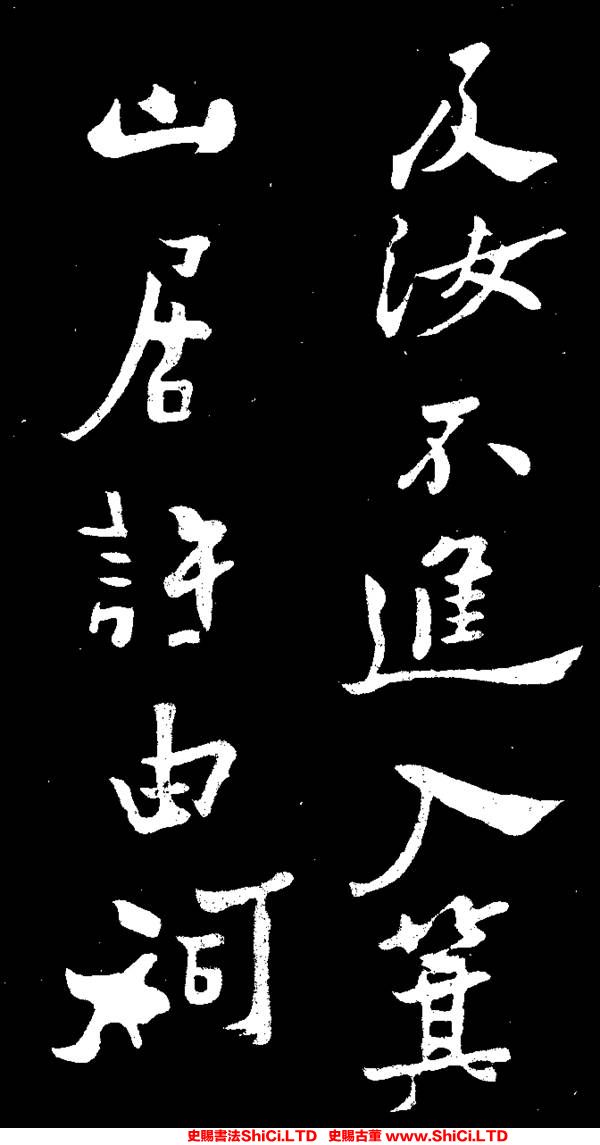 及汝不進入箕
山居許由祠
史賜書法ShiCi.LTD 史賜古董 www.ShiCi.LTD